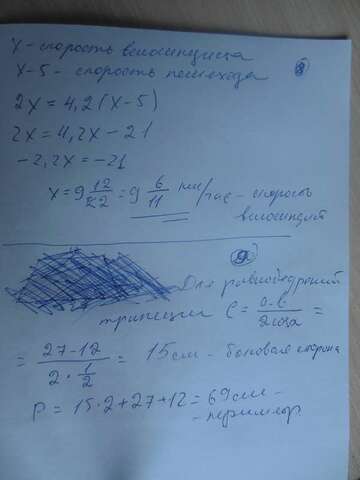 x - скорость велосипедиста
x-5 - скорость пешехода
8
2x = 4,2(x-5)
2x = 4,2x - 21
-2,2x = -21
x = 9 12/22 = 9 6/11 км/час - скорость
велосипедиста
9
Для равнобедренной
трапеции C = a-b/2cosa =
= 27-12/2·1/2 = 15 см - боковая сторона
P = 15·2+27+12 = 69 см -
- периметр.